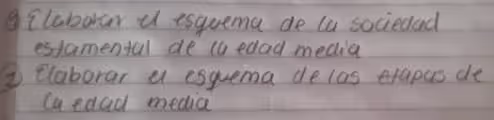 ① Elaborar el esquema de la sociedad
estamental de la edad media
② Elaborar el esquema de las etapas de
la edad media